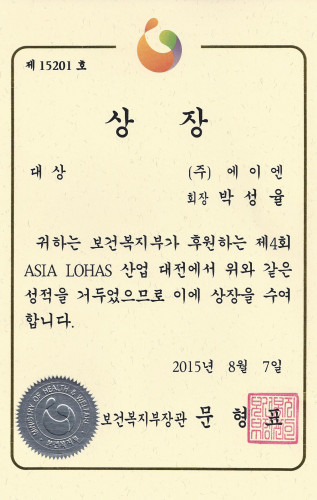 제 15201 호
상 장
대 상
(주) 에이엔
회장 박 성 율
귀하는 보건복지부가 후원하는 제4회
ASIA LOHAS 산업 대전에서 위와 같은
성적을 거두었으므로 이에 상장을 수여
합니다.
2015년 8월 7일
MINISTRY OF HEALTH & WELFARE
보건복지부
보건복지부장관 문 형 표